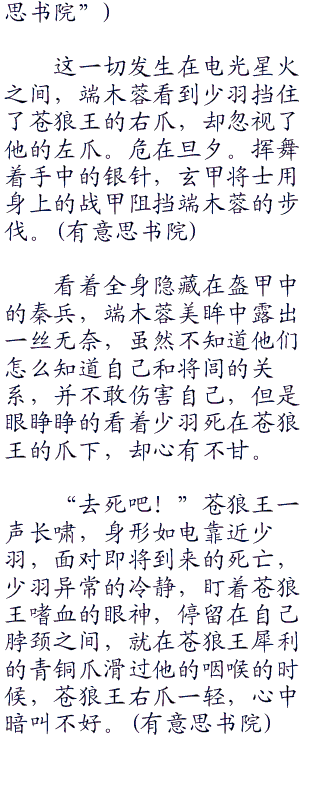 思书院”）
这一切发生在电光星火
之间，端木蓉看到少羽挡住
了苍狼王的右爪，却忽视了
他的左爪。危在旦夕。挥舞
着手中的银针，玄甲将士用
身上的战甲阻挡端木蓉的步
伐。（有意思书院）
看着全身隐藏在盔甲中
的秦兵，端木蓉美眸中露出
一丝无奈，虽然不知道他们
怎么知道自己和将闾的关
系，并不敢伤害自己，但是
眼睁睁的看着少羽死在苍狼
王的爪下，却心有不甘。
“去死吧！”苍狼王一
声长啸，身形如电靠近少
羽，面对即将到来的死亡，
少羽异常的冷静，盯着苍狼
王嗜血的眼神，停留在自己
脖颈之间，就在苍狼王犀利
的青铜爪滑过他的咽喉的时
候，苍狼王右爪一轻，心中
暗叫不好。（有意思书院）